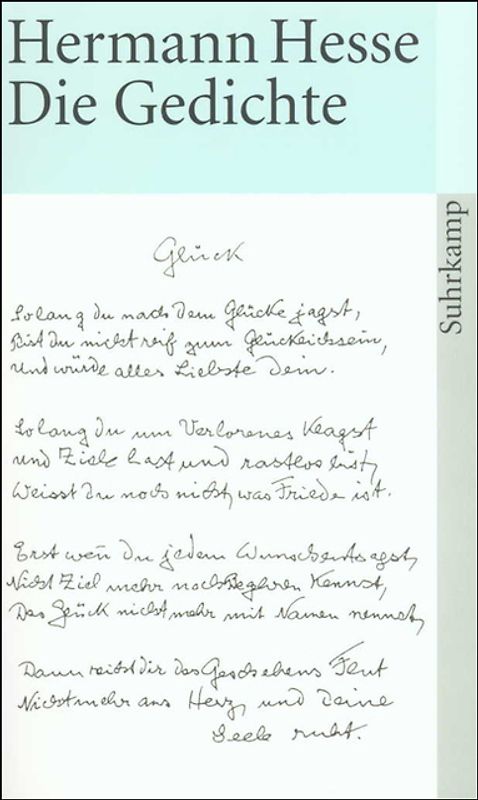 Hermann Hesse
Die Gedichte
Suhrkamp
Glück
Solang du nach dem Glücke jagst,
Bist du nicht reif zum Glücklichsein,
Und würde alles Liebste dein.
Solang du um Verlorenes klagst
und Ziele hast und rastlos bist,
Weisst du noch nicht, was Friede ist.
Erst wen̄ du jedem Wunsch entsagst,
Nicht Ziel mehr noch Begehren kennst,
Das Glück nicht mehr mit Namen nennst,
Dann reicht dir des Geschehens Flut
Nicht mehr ans Herz, und deine
Seele ruht.